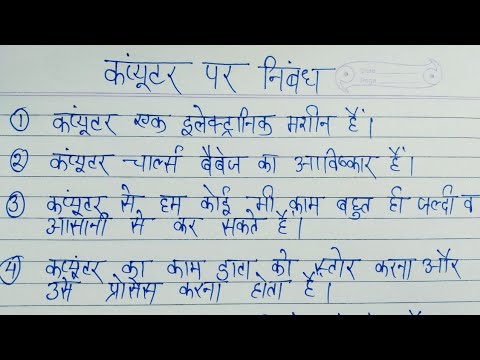 कंप्यूटर पर निबंध
① कंप्यूटर एक इलेक्ट्रानिक मशीन हैं।
② कंप्यूटर चार्ल्स बैबेज का आविष्कार हैं।
③ कंप्यूटर से हम कोई भी काम बहुत ही जल्दी व
आसानी से कर सकते हैं।
④ कंप्यूटर का काम डाटा को स्टोर करना और
उसे प्रोसेस करना होता है।